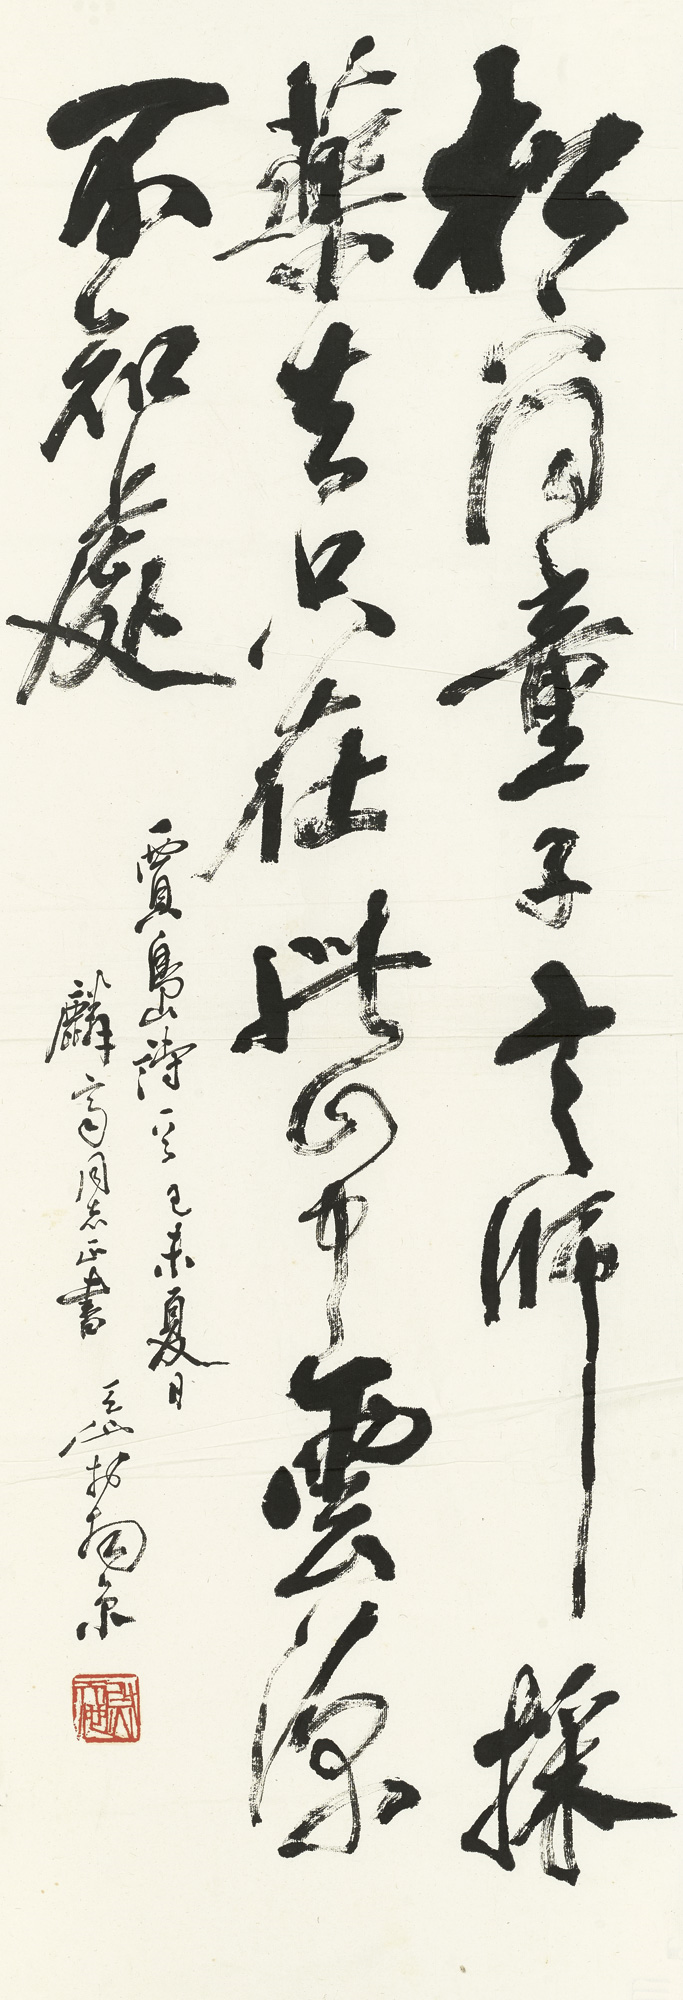 松下问童子言师採
藥去只在此山中雲深
不知處
賈島詩 己未夏日
麟高同志正書